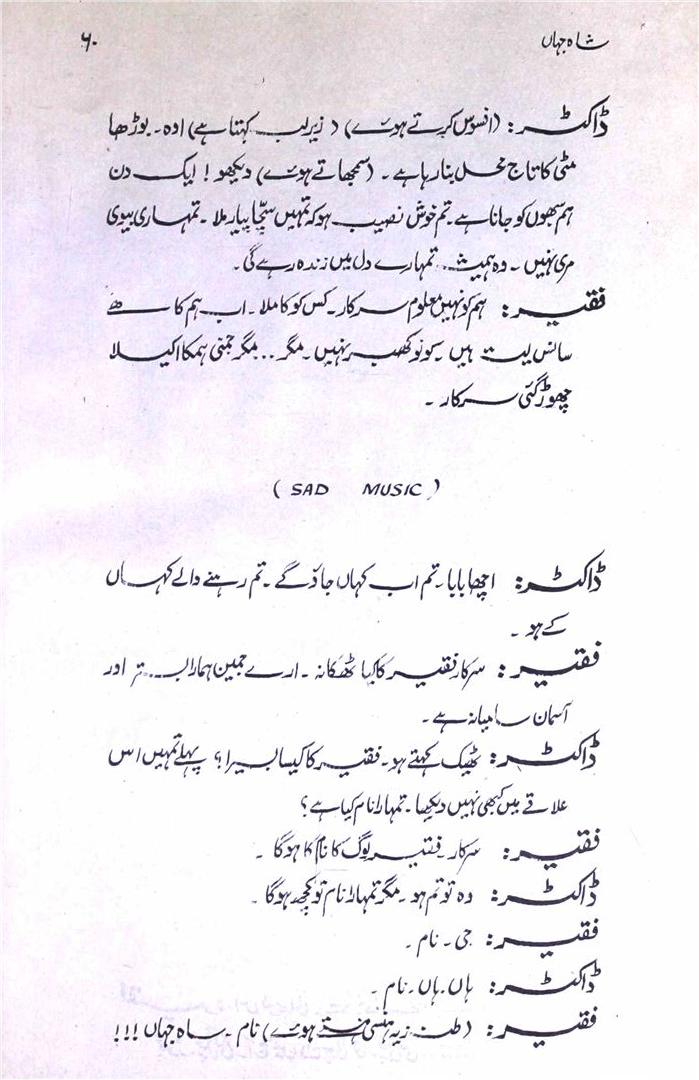 شاہ جہاں ۶۰
ڈاکٹر: (افسوس کرتے ہوئے) (زیرلب کہتا ہے) اوہ۔ بوڑھا
مٹی کا تاج محل بنا رہا ہے۔ (سمجھاتے ہوئے) دیکھو! ایک دن
ہم سبھوں کو جانا ہے۔ تم خوش نصیب ہو کہ تمہیں سچّا پیار ملا۔ تمہاری بیوی
مری نہیں۔ وہ ہمیشہ تمہارے دل میں زندہ رہے گی۔
فقیر: ہم کو نہیں معلوم سرکار۔ کس کو کا ملا۔ اب ہم کاہے
سانس لیت ہیں۔ کونو کھبر نہیں۔ مگر... مگر جمنی ہمکا اکیلا
چھوڑ گئی سرکار۔
( SAD MUSIC )
ڈاکٹر: اچھا بابا۔ تم اب کہاں جاؤ گے۔ تم رہنے والے کہاں
کے ہو۔
فقیر: سرکار فقیر کا کیا ٹھکانہ۔ ارے جمین ہمارا بستر اور
آسمان سامیانہ ہے۔
ڈاکٹر: ٹھیک کہتے ہو۔ فقیر کا کیسا بسیرا؟ پہلے تمہیں اس
علاقے میں کبھی نہیں دیکھا۔ تمہارا نام کیا ہے؟
فقیر: سرکار۔ فقیر لوگ کا نام کا ہوگا۔
ڈاکٹر: وہ تو تم ہو۔ مگر تمہارا نام تو کچھ ہوگا۔
فقیر: جی۔ نام۔
ڈاکٹر: ہاں۔ ہاں۔ نام۔
فقیر: (طنزیہ ہنسی ہنستے ہوئے) نام۔ ساہ جہاں!!!